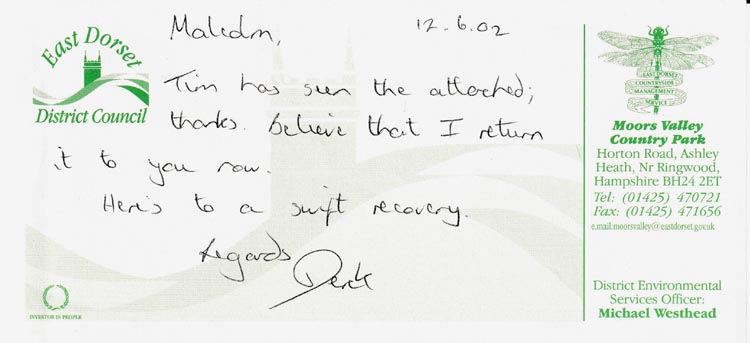 East Dorset
District Council
Malcolm,
12.6.02
Tim has seen the attached;
thanks. Believe that I return
it to you now.
Here's to a swift recovery.
Regards
Derek
INVESTOR IN PEOPLE
EAST DORSET
COUNTRYSIDE
MANAGEMENT
SERVICE
Moors Valley
Country Park
Horton Road, Ashley
Heath, Nr Ringwood,
Hampshire BH24 2ET
Tel: (01425) 470721
Fax: (01425) 471656
e.mail:moorsvalley@eastdorset.gov.uk
District Environmental
Services Officer:
Michael Westhead